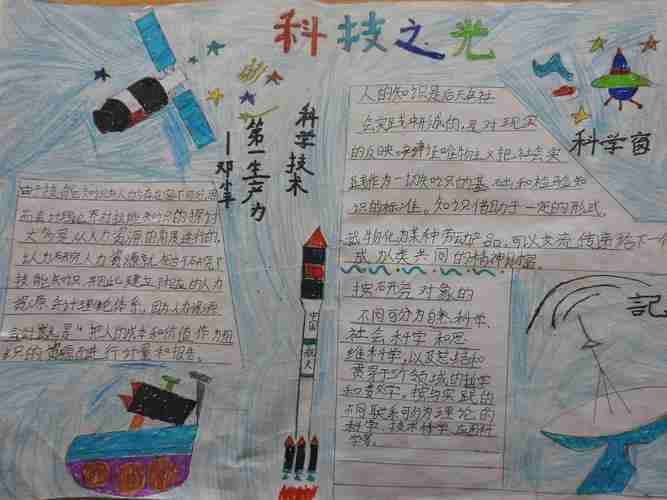 科技之光
科学技术
第一生产力
——邓小平
科学窗
人的知识是后天在社
会实践中形成的,是对现实
的反映。辩证唯物主义把社会实
践作为一切知识的基础和检验知
识的标准。知识借助于一定的形式,
或物化为某种劳动产品,可以交流传递给下一
成为人类共同的精神财富。
按研究对象的
不同可分为自然科学、
社会科学和思
维科学,以及总结和
贯穿于个领域的哲学
和数学。按与实践的
不同联系可分为理论的
科学、技术科学、应用科
学等。
由于技能知识与人的存在是不可分
而会计理论界对技能知识的探讨
大多是从人力资源的角度进行的。
从人力资源
技能知识,并因此建立对应的人力
资源会计理论体系。因为人力资源
会计就是“把人的成本和价值作为组
织的资源而进行计量和报告。
中国
航天
记